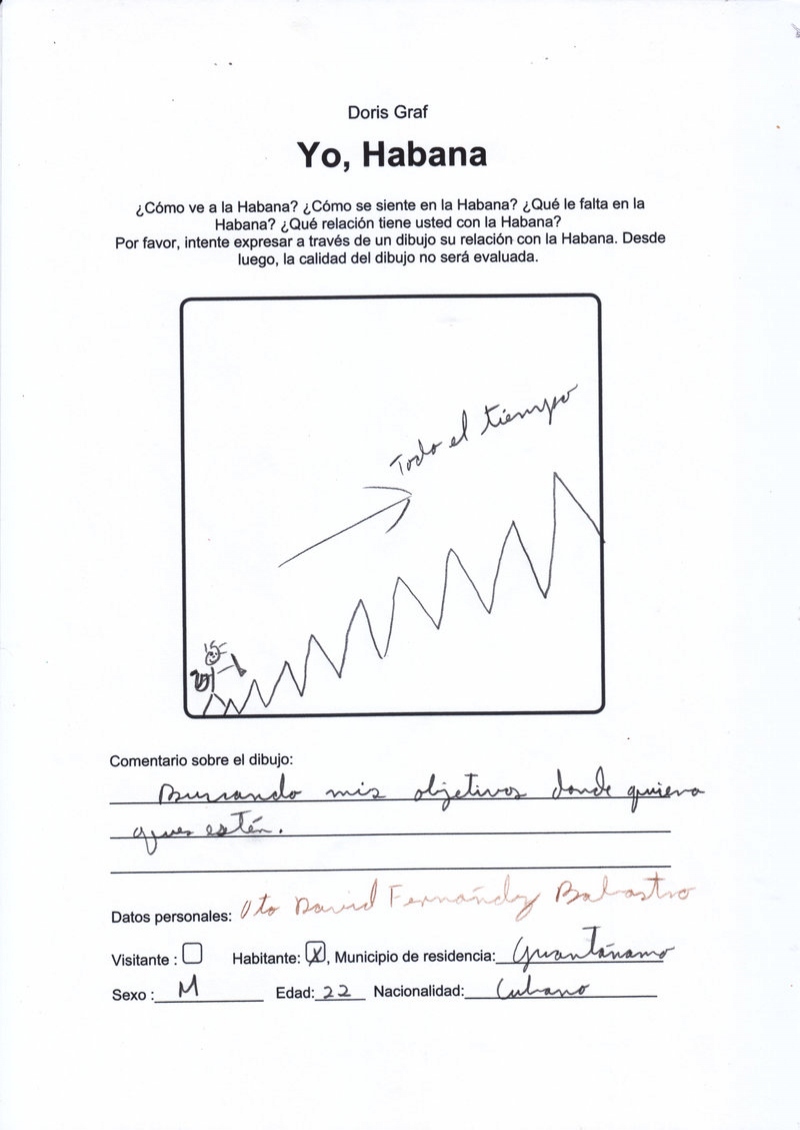 Doris Graf
Yo, Habana
¿Cómo ve a la Habana? ¿Cómo se siente en la Habana? ¿Qué le falta en la
Habana? ¿Qué relación tiene usted con la Habana?
Por favor, intente expresar a través de un dibujo su relación con la Habana. Desde
luego, la calidad del dibujo no será evaluada.
Todo el tiempo
Comentario sobre el dibujo:
mis objetivos donde quiera
que estén.
Datos personales: Oto David Fernández
Visitante : Habitante: X, Municipio de residencia: Guantánamo
Sexo : M Edad: 22 Nacionalidad: Cubano